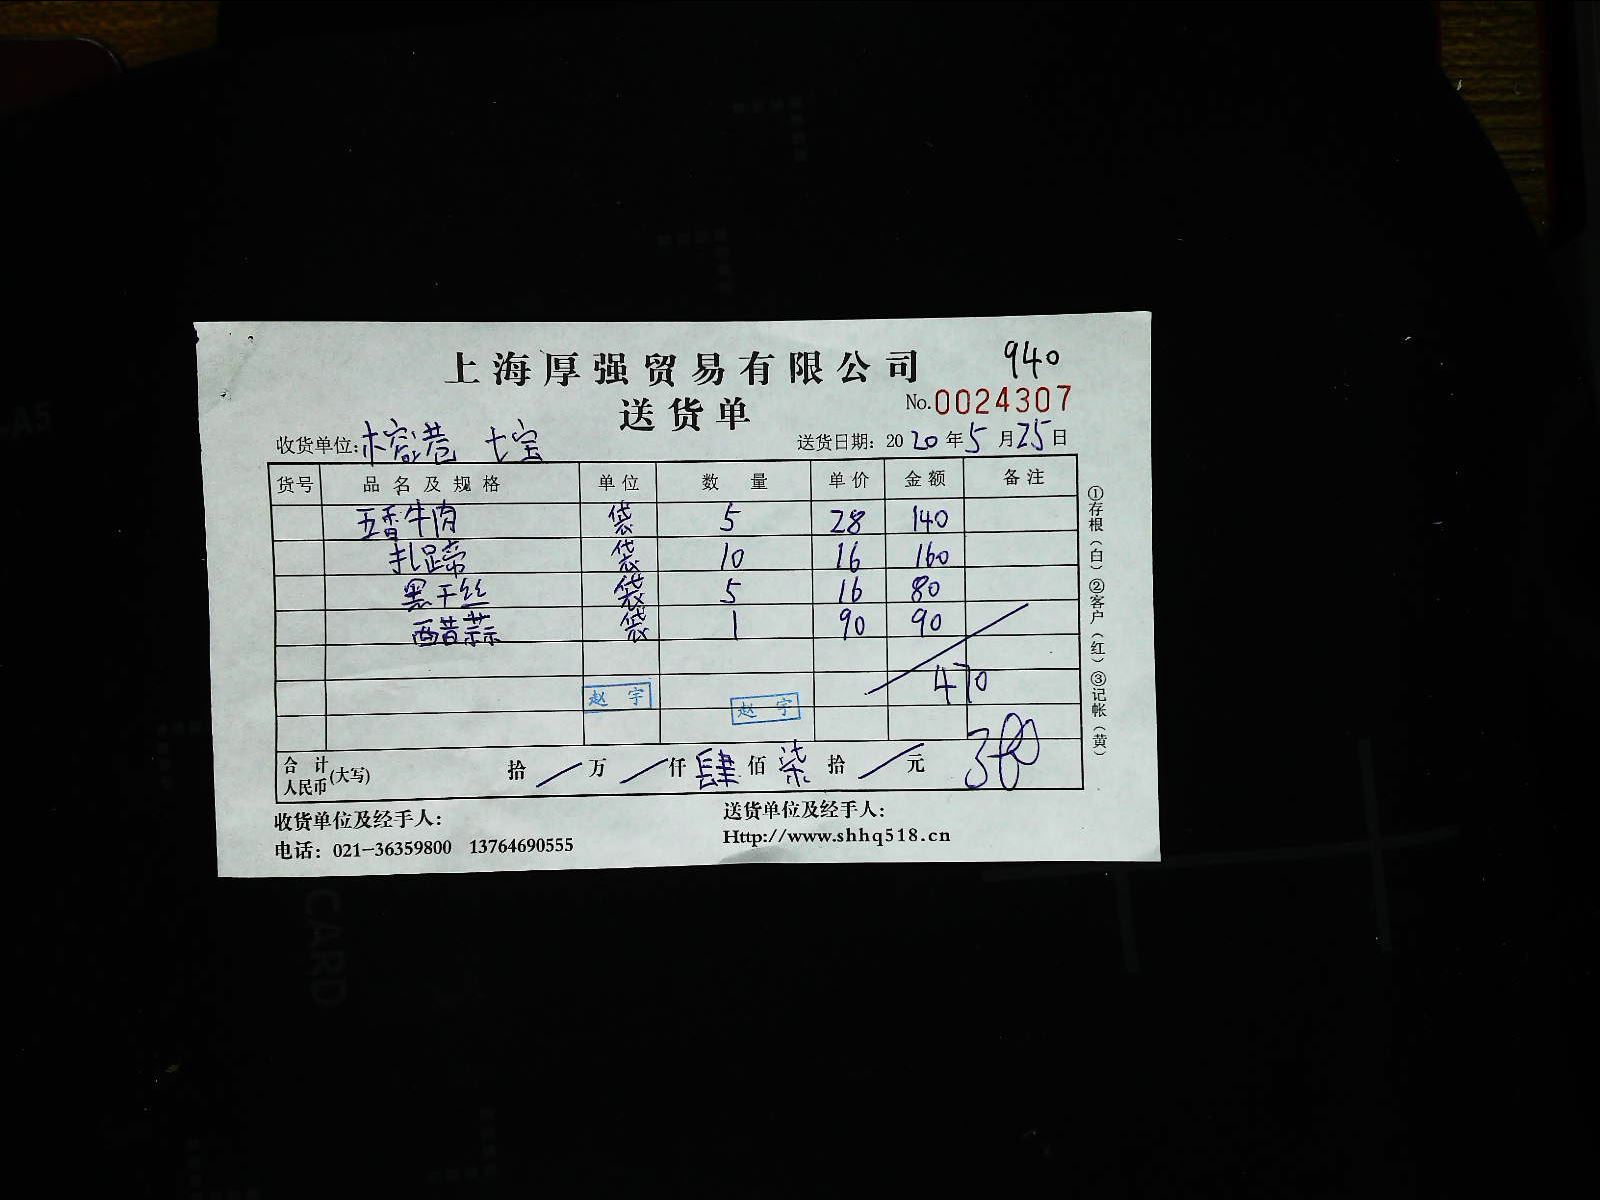 上海厚强贸易有限公司 940
送货单 No.0024307
收货单位:榕港 七宝 送货日期: 2020年5月25日
货号 品名及规格 单位 数量 单价 金额 备注
五香牛肉 袋 5 28 140
扎蹄 袋 10 16 160
黑干丝 袋 5 16 80
醋蒜 袋 1 90 90
470
赵宇
赵宇
380
合计人民币(大写) 拾/万/仟肆佰柒拾/元
收货单位及经手人: 送货单位及经手人:
电话: 021-36359800 13764690555 Http://www.shhq518.cn
①存根(白)②客户(红)③记帐(黄)
A5
CARD